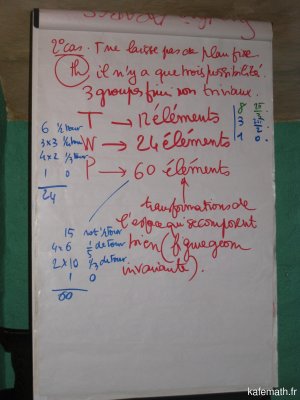 2° cas. T ne laisse pas de plan fixe.
th, il n'y a que trois possibilité.
3 groupes fini non triviaux.
T → 12 éléments
W → 24 éléments
P → 60 éléments
8
3
1 0
6 1/2 tour
3 x 3 1/4 tour
4 x 2 1/3 tour
1 0
24
transformations de
l'espace qui se composent
bien (figure géom
invariante).
15 rot° 1/2 tour
4 x 6 1/5 de tour
2 x 10 1/3 de tour
1 0
60
kafemath.fr